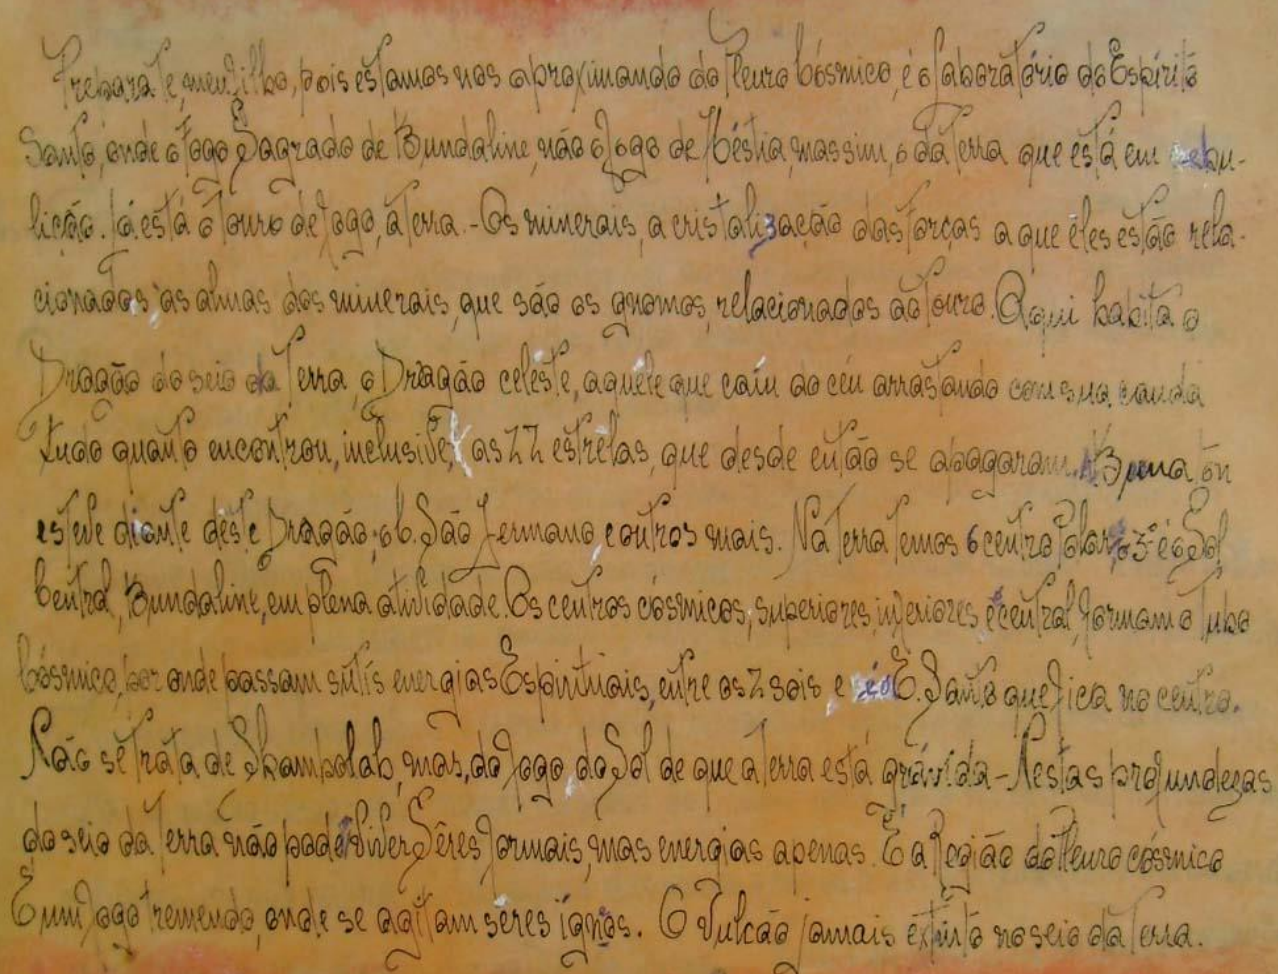 Prepara te, meu filho, pois estamos nos aproximando do Pleuro Cósmico, é o laboratório do Espírito
Santo, onde o fogo Sagrado de Kundaline, não o fogo de Héstia, mas sim, o da Terra que está em ebu-
lição. Lá está o Touro de fogo, a Terra. - Os minerais, a cristalização das forças a que êles estão rela-
cionados às almas dos minerais, que são os gnomos, relacionados ao Touro. Aqui habita o
Dragão do seio da Terra, o Dragão celéste, aquele que caíu do céu arrastando com sua cauda
tudo quanto encontrou, inclusive, as 22 estrêlas, que desde então se apagaram.
esteve diante dêste Dragão; o C. São Germano e outros mais. Na Terra temos 6 centro Polar, o 3º é o Sol
Central, Kundaline, em plena atividade. Os centros cósmicos, superiores, inferiores e central, formam o Tubo
Cósmico, por onde passam sutís energias Espirituais, entre os 2 sois e é o E. Santo que fica no centro.
Não se trata de Shamballah, mas, do fogo do Sol de que a Terra está grávida - Nestas profundezas
do seio da Terra não pode viver Sêres formais, mas energias apenas. É a Região do Pleuro cósmico
É um fogo tremendo, onde se agitam sêres ígnos. O Vulcão jamais extinto no seio da Terra.